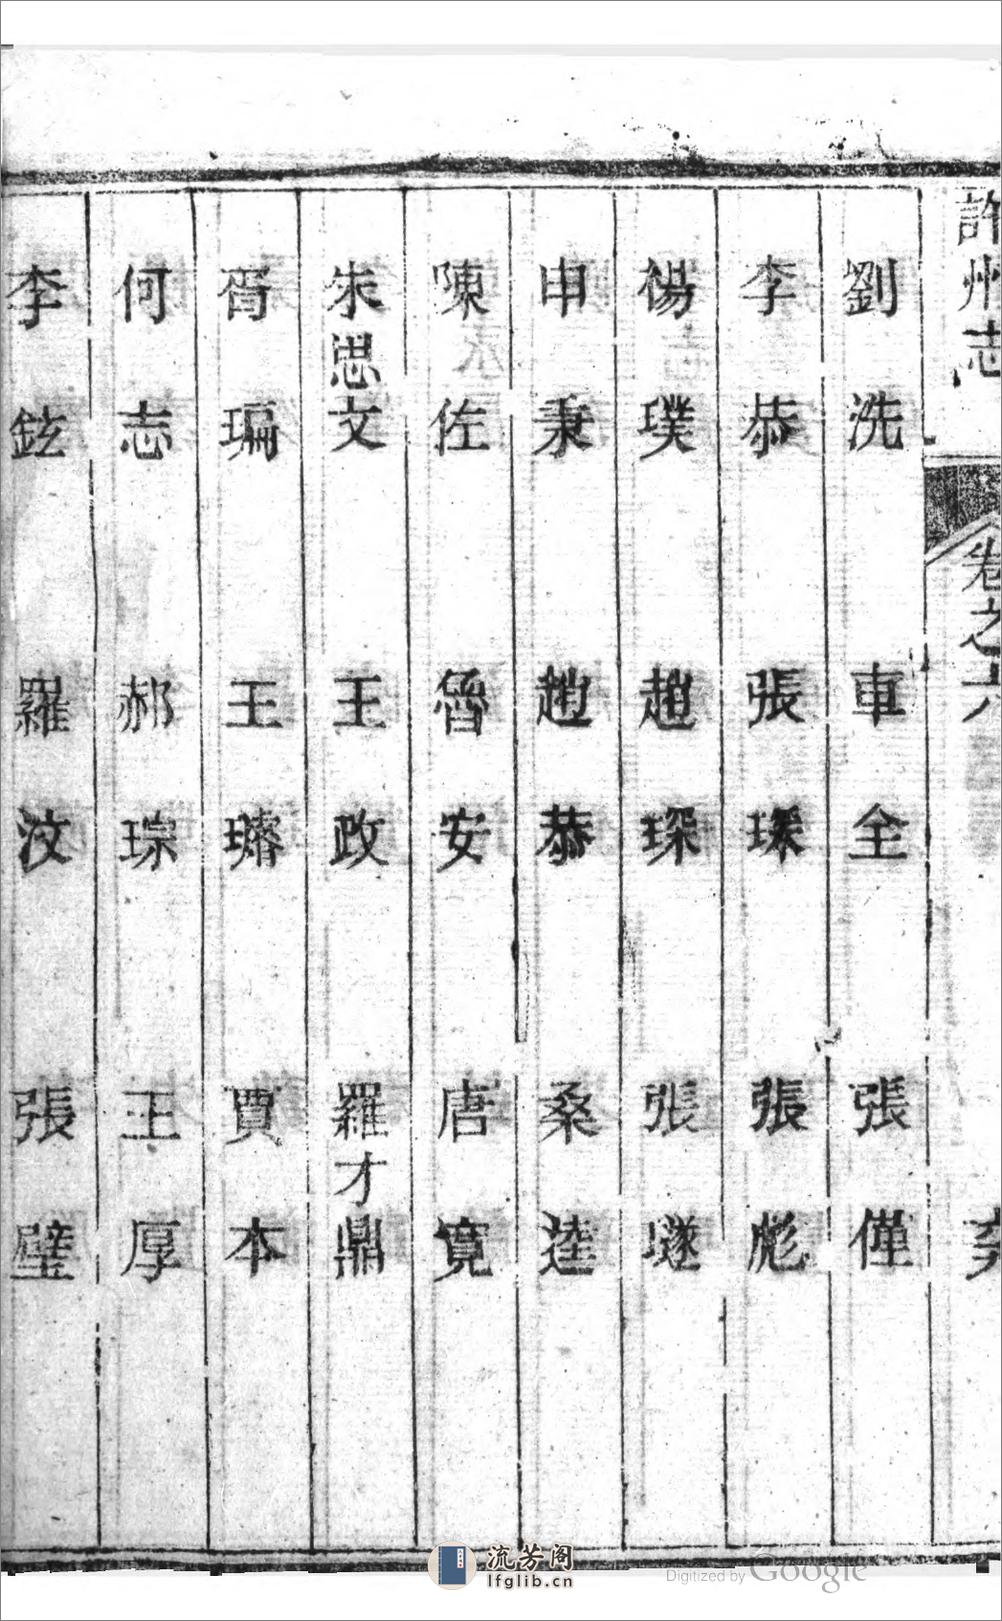 許州志 卷之六
劉洗 車全 張僅
李恭 張琛 張彪
楊璞 趙琛 張𡑞
申秉 趙恭 桑逵
陳佐 魯安 唐寬
朱思文 王政 羅才鼎
胥㻞 王璿 賈本
何志 郝琮 王厚
李鉉 羅汶 張璧
流芳阁
lfglib.cn
Digitized by Google